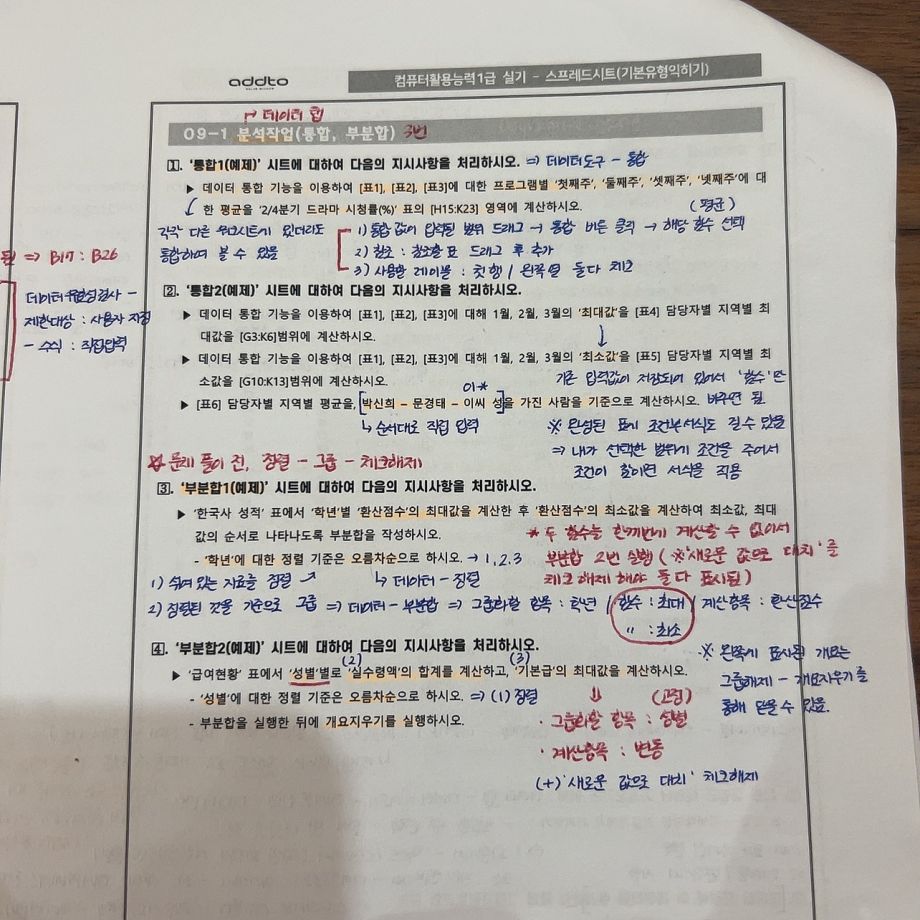 addto
컴퓨터활용능력1급 실기 - 스프레드시트(기본유형익히기)
→ 데이터 탭
09-1 분석작업(통합, 부분합) 3번
1. '통합1(예제)' 시트에 대하여 다음의 지시사항을 처리하시오. ⇒ 데이터도구 - 통합
▶ 데이터 통합 기능을 이용하여 [표1], [표2], [표3]에 대한 프로그램별 '첫째주', '둘째주', '셋째주', '넷째주'에 대
한 평균을 '2/4분기 드라마 시청률(%)' 표의 [H15:K23] 영역에 계산하시오. (평균)
각각 다른 워크시트에 있더라도
통합하여 볼 수 있음
1) 통합 값이 입력될 범위 드래그 → 통합 버튼 클릭 → 해당 함수 선택
2) 참조 : 참조할 표 드래그 후 추가
3) 사용할 레이블 : 첫 행 / 왼쪽 열 둘다 체크
⇒ B17 : B26
데이터유효성검사 -
제한대상 : 사용자 지정
- 수식 : 직접입력
2. '통합2(예제)' 시트에 대하여 다음의 지시사항을 처리하시오.
▶ 데이터 통합 기능을 이용하여 [표1], [표2], [표3]에 대해 1월, 2월, 3월의 '최대값'을 [표4] 담당자별 지역별 최
대값을 [G3:K6]범위에 계산하시오.
▶ 데이터 통합 기능을 이용하여 [표1], [표2], [표3]에 대해 1월, 2월, 3월의 '최소값'을 [표5] 담당자별 지역별 최
소값을 [G10:K13]범위에 계산하시오.
기존 입력값이 저장되어 있어서 '함수'만
이*
▶ [표6] 담당자별 지역별 평균을, [박신희 - 문경태 - 이씨 성]을 가진 사람을 기준으로 계산하시오. 바꾸면 됨
↳ 순서대로 직접 입력
※ 완성된 표에 조건부서식도 줄 수 있음
⇒ 내가 선택한 범위에 조건을 주어서
조건에 맞으면 서식을 적용
☆ 문제 풀이 전, 정렬 - 그룹 - 체크해제
3. '부분합1(예제)' 시트에 대하여 다음의 지시사항을 처리하시오.
▶ '한국사 성적' 표에서 '학년'별 '환산점수'의 최대값을 계산한 후 '환산점수'의 최소값을 계산하여 최소값, 최대
값의 순서로 나타나도록 부분합을 작성하시오.
* 두 함수는 한꺼번에 계산할 수 없어서
부분합 2번 실행 (※'새로운 값으로 대치'를
체크 해제 해야 둘 다 표시됨)
- '학년'에 대한 정렬 기준은 오름차순으로 하시오. → 1, 2, 3
1) 섞여 있는 자료를 정렬
↳ 데이터 - 정렬
2) 정렬된 것을 기준으로 그룹 ⇒ 데이터 - 부분합 ⇒ 그룹화할 항목 : 학년 / 함수 : 최대 / 계산항목 : 환산점수
〃 : 최소
4. '부분합2(예제)' 시트에 대하여 다음의 지시사항을 처리하시오.
(2) (3)
▶ '급여현황' 표에서 '성별'별로 '실수령액'의 합계를 계산하고, '기본급'의 최대값을 계산하시오.
- '성별'에 대한 정렬 기준은 오름차순으로 하시오. ⇒ (1) 정렬
- 부분합을 실행한 뒤에 개요지우기를 실행하시오.
⇓ (고정)
· 그룹화할 항목 : 성별
· 계산항목 : 변동
(+) '새로운 값으로 대치' 체크해제
※ 왼쪽에 표시된 개요는
그룹해제 - 개요지우기를
통해 없앨 수 있음.